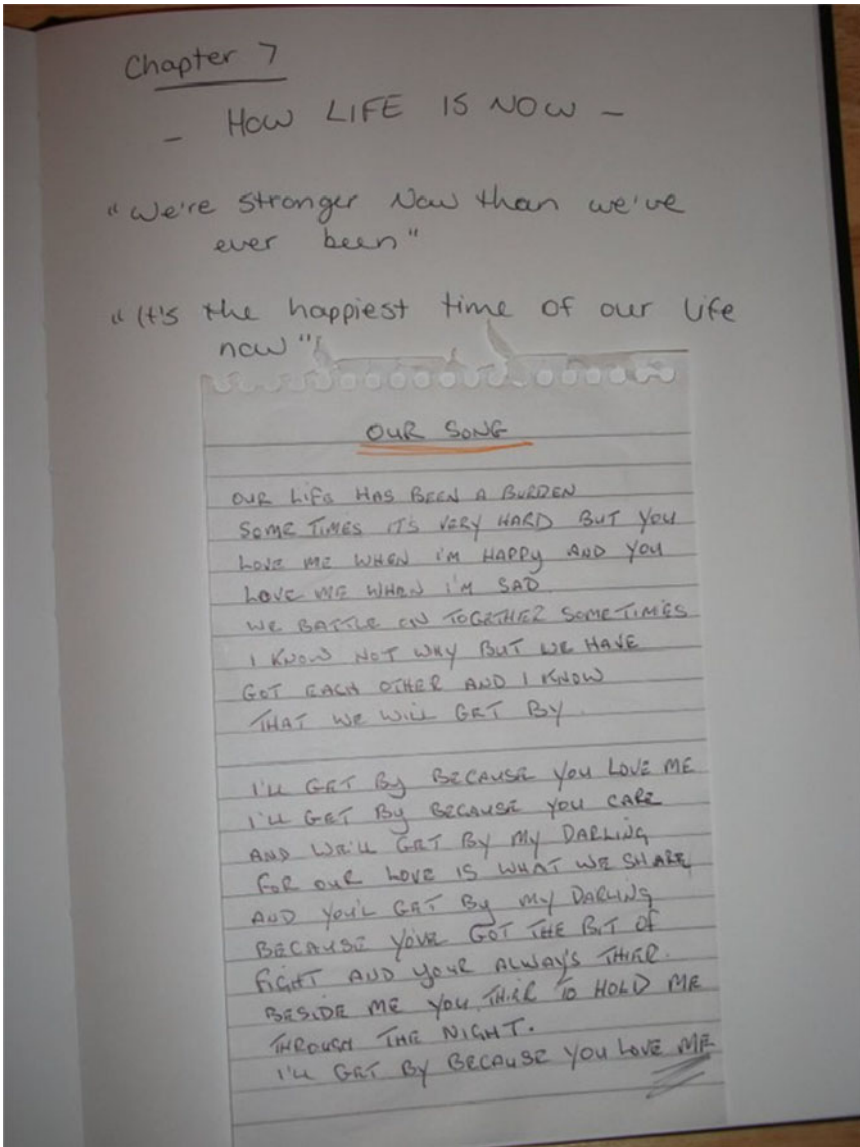 Chapter 7
- HOW LIFE IS NOW -
"We're stronger Now than we've
ever been"
"It's the happiest time of our life
now"
OUR SONG
OUR LIFE HAS BEEN A BURDEN
SOME TIMES IT'S VERY HARD BUT YOU
LOVE ME WHEN I'M HAPPY AND YOU
LOVE ME WHEN I'M SAD.
WE BATTLE ON TOGETHER SOMETIMES
I KNOW NOT WHY BUT WE HAVE
GOT EACH OTHER AND I KNOW
THAT WE WILL GET BY.
I'LL GET BY BECAUSE YOU LOVE ME
I'LL GET BY BECAUSE YOU CARE
AND WE'LL GET BY MY DARLING
FOR OUR LOVE IS WHAT WE SHARE
AND YOU'L GET BY MY DARLING
BECAUSE YOUR GOT THE BIT OF
FIGHT AND YOUR ALWAY'S THIER
BESIDE ME YOU THIER TO HOLD ME
THROUGH THE NIGHT.
I'LL GET BY BECAUSE YOU LOVE ME